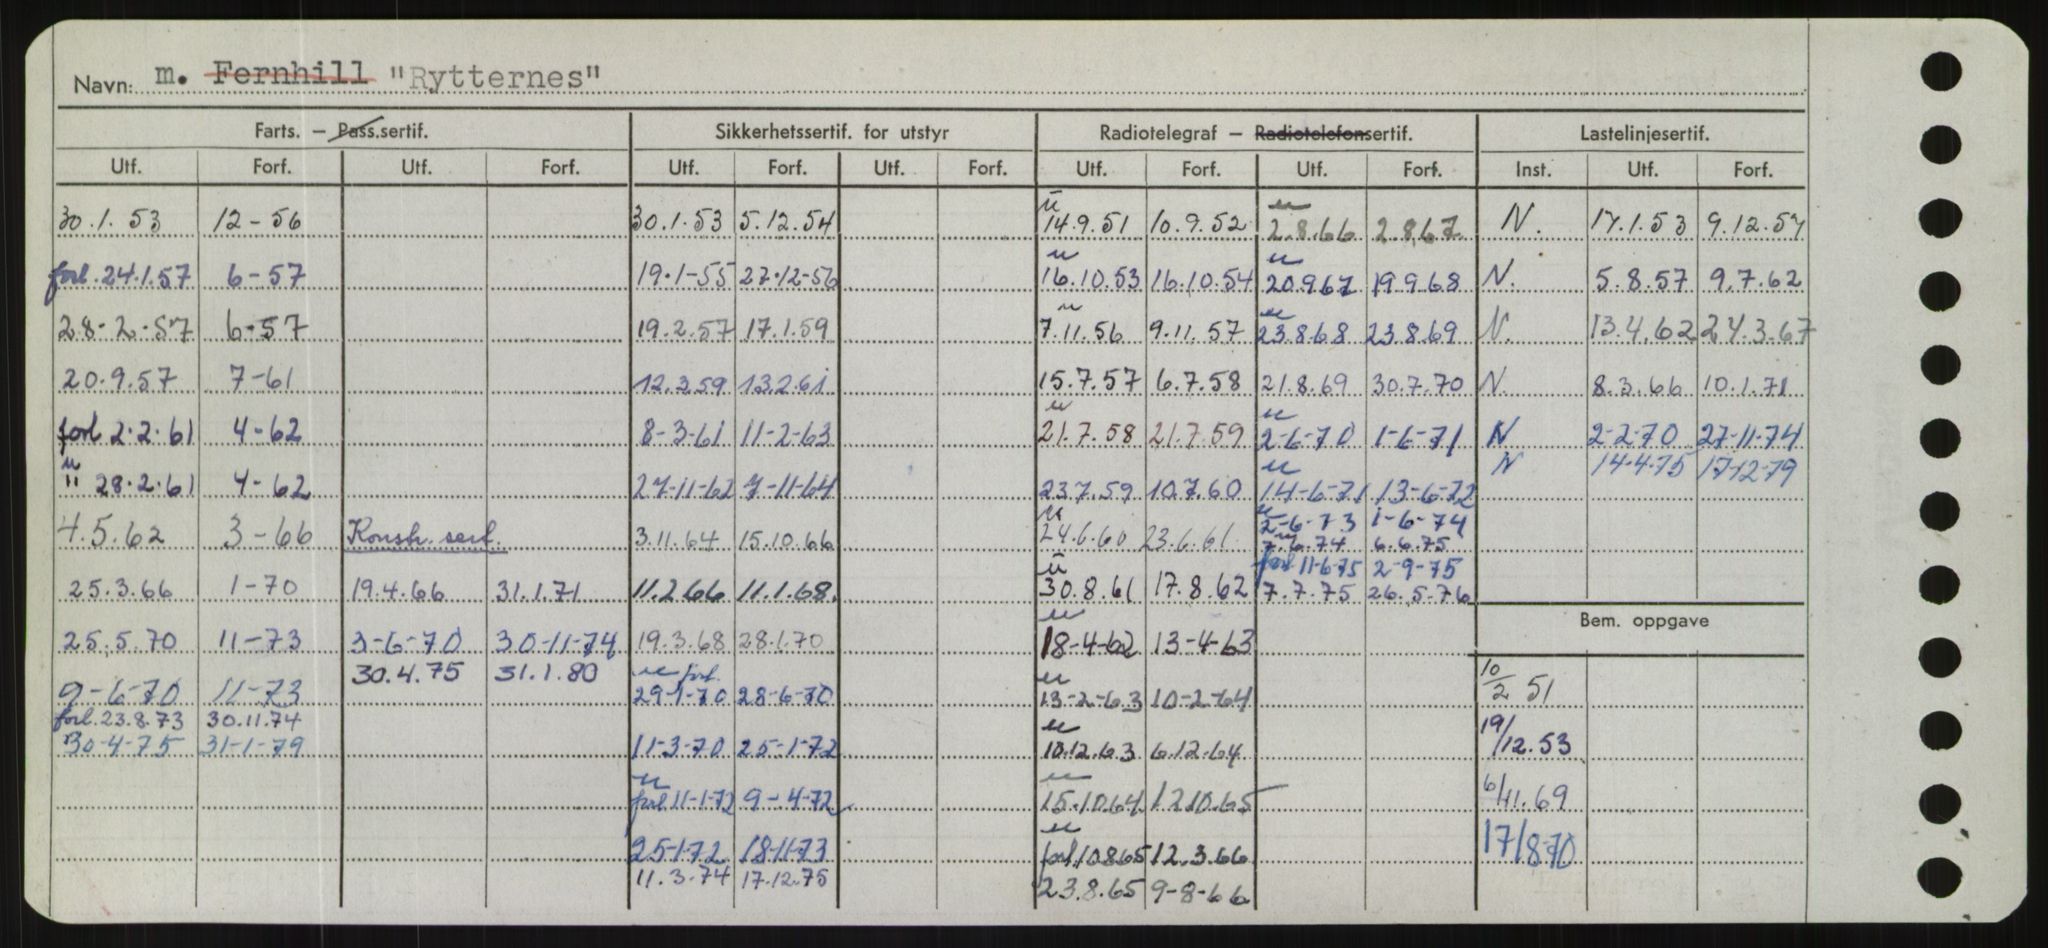 Navn: m. Fernhill "Rytternes"
Farts. – Pass.sertif. Sikkerhetssertif. for utstyr Radiotelegraf – Radiotelefonsertif. Lastelinjesertif.
Utf. Forf. Utf. Forf. Utf. Forf. Utf. Forf. Utf. Forf. Utf. Forf. Inst. Utf. Forf.
30.1.53 12-56 30.1.53 5.12.54 u 14.9.51 10.9.52 u 2.8.66 2.8.67 N. 17.1.53 9.12.57
forl. 24.1.57 6-57 19.1-55 27.12-56 u 16.10.53 16.10.54 u 20.9.67 19.9.68 N. 5.8.57 9.7.62
28-2-57 6-57 19.2.57 17.1.59 u 7.11.56 9.11.57 u 23.8.68 23.8.69 N. 13.4.62 24.3.67
20.9.57 7-61 12.3.59 13.2.61 15.7.57 6.7.58 21.8.69 30.7.70 N. 8.3.66 10.1.71
forl 2.2.61 4-62 8-3-61 11-2-63 u 21.7.58 21.7.59 u 2-6-70 1-6-71 N 2-2-70 27-11-74
N 14-4-75 17-12-79
u " 28.2.61 4-62 27-11-62 7-11-64 23.7.59 10.7.60 u 14-6-71 13-6-72
4.5.62 3-66 Konstr. sert. 3.11.64 15.10.66 u 24.6.60 23.6.61 u 2-6-73 1-6-74
7.6.74 6.6.75
forl 11-6-75 2-9-75
25.3.66 1-70 19.4.66 31.1.71 11.2.66 11.1.68. u 30.8.61 17.8.62 7.7.75 26.5.76
Bem. oppgave
25.5.70 11-73 3-6-70 30-11-74 19.3.68 28.1.70 u 18-4-62 13-4-63
30.4.75 31.1.80
9-6-70 11-73 u forl. 29-1-70 28-6-70 u 13-2-63 10-2-64 10/2 51
forl. 23.8.73 30.11.74
30-4-75 31-1-79 11-3-70 25-1-72 u 10.12.63 6.12.64 19/12.53
u forl 11-1-72 9-4-72 u 15.10.64 12.10.65 6/11.69
25-1-72 18-11-73 u forl 10.8.65 12.3.66 17/8-70
11.3.74 17.12.75 23.8.65 9-8-66